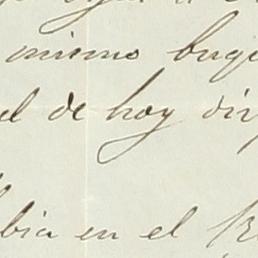 mismo buq
de hoy dir
bia en el R